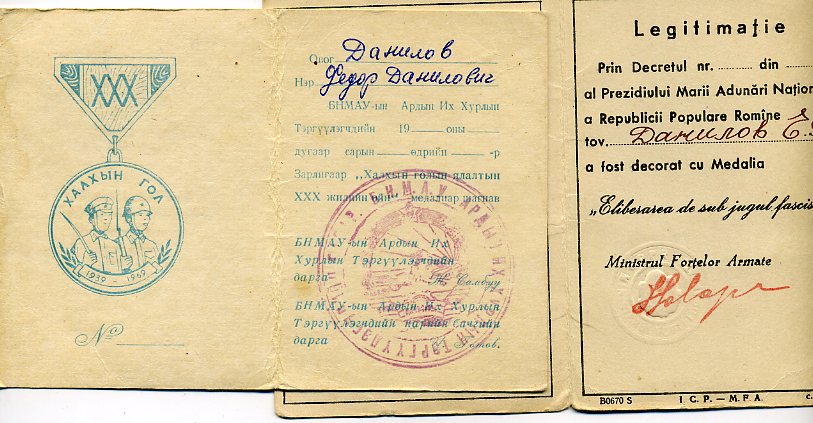 XXX
ХАЛХЫН ГОЛ
1939 - 1969
№
Овог Данилов
Нэр Федор Данилович
БНМАУ-ын Ардын Их Хурлын
Тэргүүлэгчдийн 19 оны
дугаар сарын өдрийн -р
Зарлигаар „Халхын голын ялалтын
XXX жилийн ой" медалиар шагнав
БНМАУ-ын Ардын Их
Хурлын Тэргүүлэгчдийн
дарга Ж. Самбуу
БНМАУ-ын Ардын Их Хурлын
Тэргүүлэгчдийн нарийн бичгийн
дарга
Б.Н.М.А.У АРДЫН ИХ
Legitimație
Prin Decretul nr. din
al Prezidiului Marii Adunări Națion
a Republicii Populare Romîne
tov. Данилов
a fost decorat cu Medalia
„Eliberarea de sub jugul fascis
Ministrul Forțelor Armate
B0670 S I C.P. — M.F.A. c.